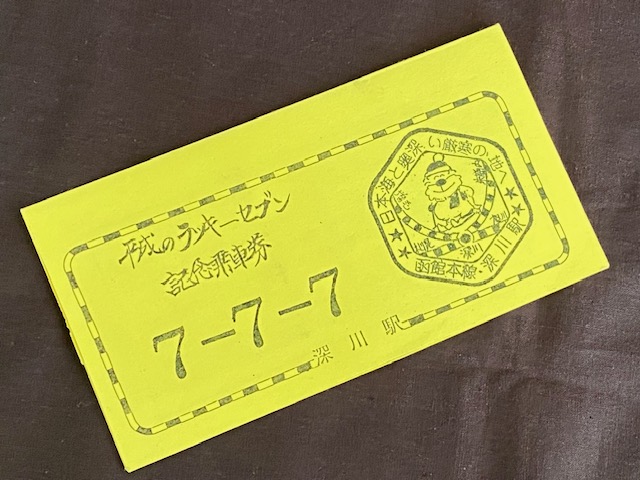 平成のラッキーセブン
記念乗車券
7-7-7
深川駅
日本海と奥深い厳寒の地へ
深川
函館本線・深川駅